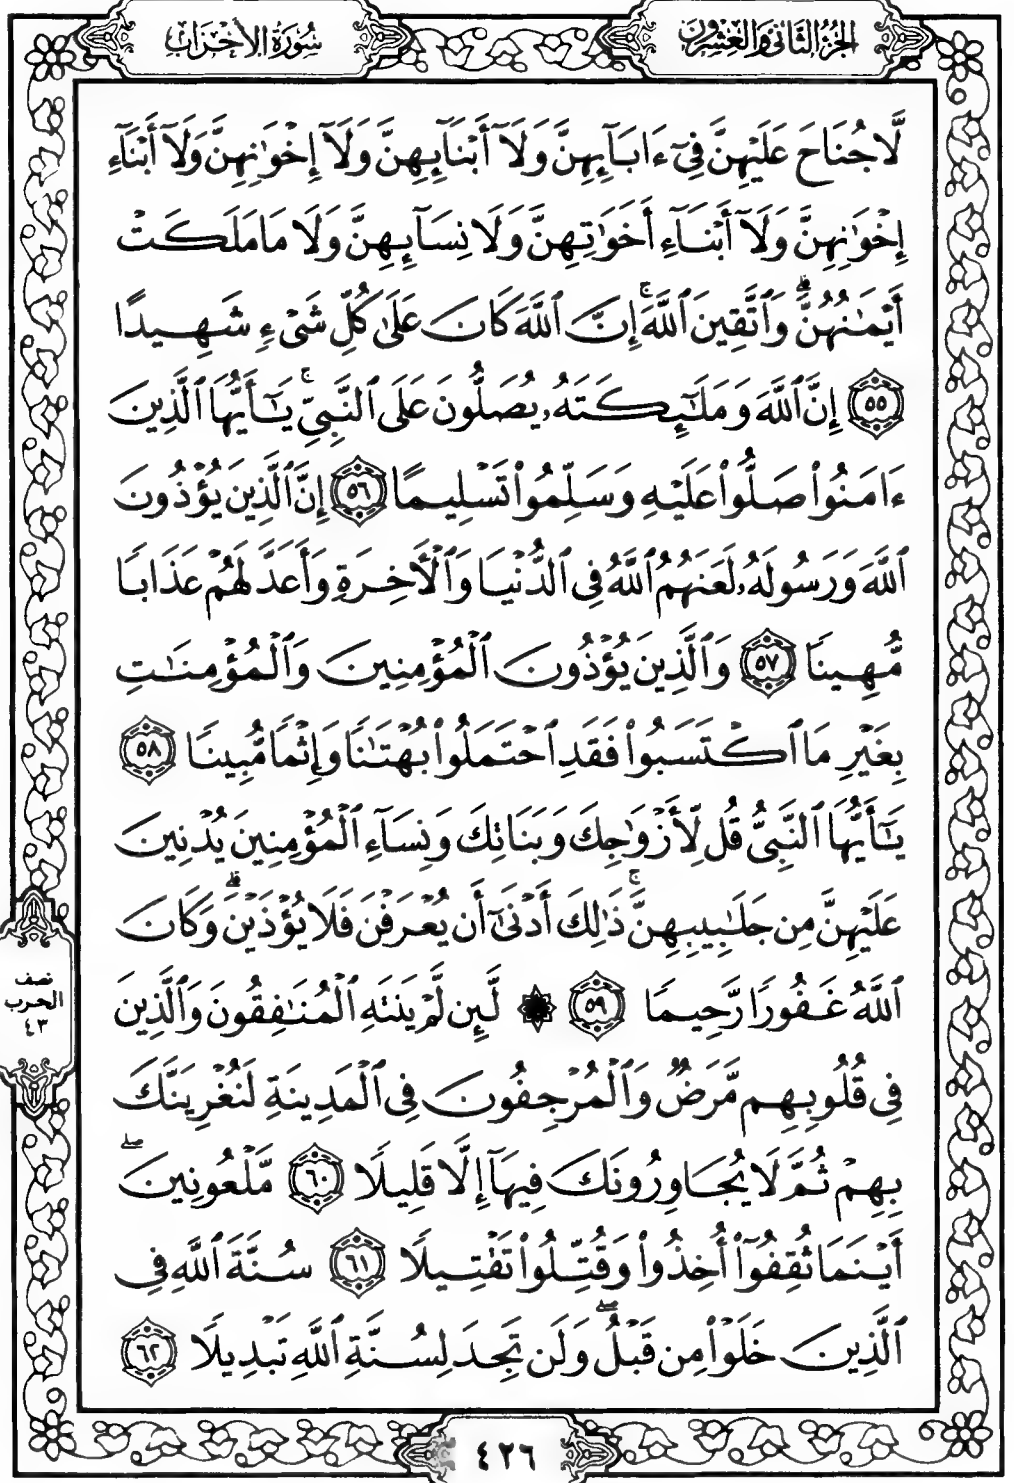 الجزء الثاني والعشرون
سورة الأحزاب
لَّا جُنَاحَ عَلَيْهِنَّ فِىٓ ءَابَآئِهِنَّ وَلَآ أَبْنَآئِهِنَّ وَلَآ إِخْوَٰنِهِنَّ وَلَآ أَبْنَآءِ
إِخْوَٰنِهِنَّ وَلَآ أَبْنَآءِ أَخَوَٰتِهِنَّ وَلَا نِسَآئِهِنَّ وَلَا مَا مَلَكَتْ
أَيْمَٰنُهُنَّۗ وَٱتَّقِينَ ٱللَّهَۚ إِنَّ ٱللَّهَ كَانَ عَلَىٰ كُلِّ شَىْءٍ شَهِيدًا
٥٥ إِنَّ ٱللَّهَ وَمَلَٰٓئِكَتَهُۥ يُصَلُّونَ عَلَى ٱلنَّبِىِّۚ يَٰٓأَيُّهَا ٱلَّذِينَ
ءَامَنُوا۟ صَلُّوا۟ عَلَيْهِ وَسَلِّمُوا۟ تَسْلِيمًا ٥٦ إِنَّ ٱلَّذِينَ يُؤْذُونَ
ٱللَّهَ وَرَسُولَهُۥ لَعَنَهُمُ ٱللَّهُ فِى ٱلدُّنْيَا وَٱلْأَخِرَةِ وَأَعَدَّ لَهُمْ عَذَابًا
مُّهِينًا ٥٧ وَٱلَّذِينَ يُؤْذُونَ ٱلْمُؤْمِنِينَ وَٱلْمُؤْمِنَٰتِ
بِغَيْرِ مَا ٱكْتَسَبُوا۟ فَقَدِ ٱحْتَمَلُوا۟ بُهْتَٰنًا وَإِثْمًا مُّبِينًا ٥٨
يَٰٓأَيُّهَا ٱلنَّبِىُّ قُل لِّأَزْوَٰجِكَ وَبَنَاتِكَ وَنِسَآءِ ٱلْمُؤْمِنِينَ يُدْنِينَ
عَلَيْهِنَّ مِن جَلَٰبِيبِهِنَّۚ ذَٰلِكَ أَدْنَىٰٓ أَن يُعْرَفْنَ فَلَا يُؤْذَيْنَۗ وَكَانَ
ٱللَّهُ غَفُورًا رَّحِيمًا ٥٩ ۞ لَّئِن لَّمْ يَنتَهِ ٱلْمُنَٰفِقُونَ وَٱلَّذِينَ
نصف
الحزب
٤٣
فِى قُلُوبِهِم مَّرَضٌ وَٱلْمُرْجِفُونَ فِى ٱلْمَدِينَةِ لَنُغْرِيَنَّكَ
بِهِمْ ثُمَّ لَا يُجَاوِرُونَكَ فِيهَآ إِلَّا قَلِيلًا ٦٠ مَّلْعُونِينَۖ
أَيْنَمَا ثُقِفُوٓا۟ أُخِذُوا۟ وَقُتِّلُوا۟ تَقْتِيلًا ٦١ سُنَّةَ ٱللَّهِ فِى
ٱلَّذِينَ خَلَوْا۟ مِن قَبْلُۖ وَلَن تَجِدَ لِسُنَّةِ ٱللَّهِ تَبْدِيلًا ٦٢
٤٢٦